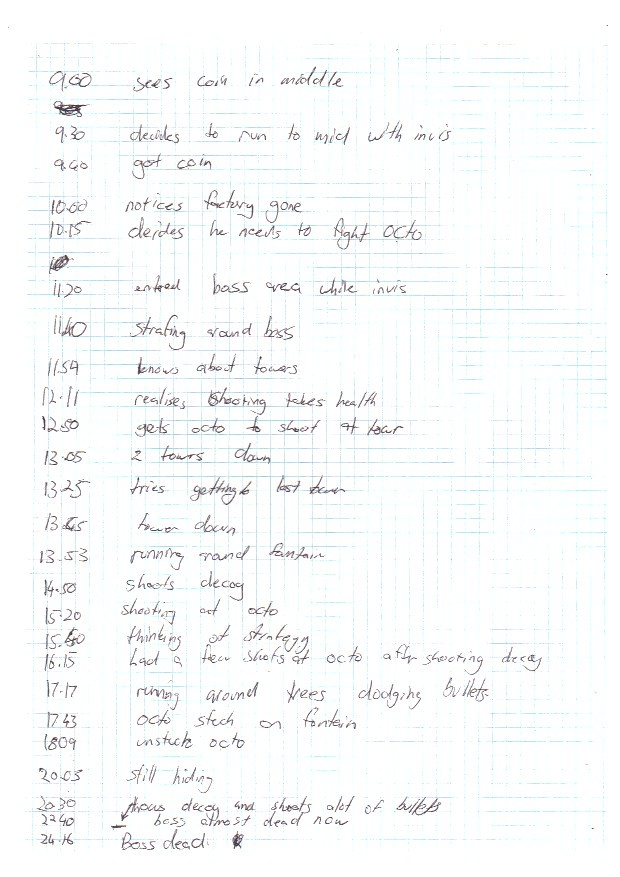 9.00 sees coin in middle
9.30 decides to run to mid with invis
9.40 got coin
10.00 notices factory gone
10.15 deides he needs to fight octo
11.20 entred boss area while invis
11.40 strafing around boss
11.54 knows about towers
12.11 realises shooting takes health
12.50 gets octo to shoot at tour
13.05 2 tours down
13.25 tries getting to last
13.45 tower down
13.53 running round fantain
14.50 shoots decoy
15.20 shooting at octo
thinking of strategy
16.15 had a few shots at octo after shooting decoy
17.17 running around trees dodging bullets
17.43 octo stuck on fontein
1809 unstuck octo
20.05 still hiding
20.30 throws decoy and shoots alot of bullets
2240 boss almost dead now
24.16 Boss dead.